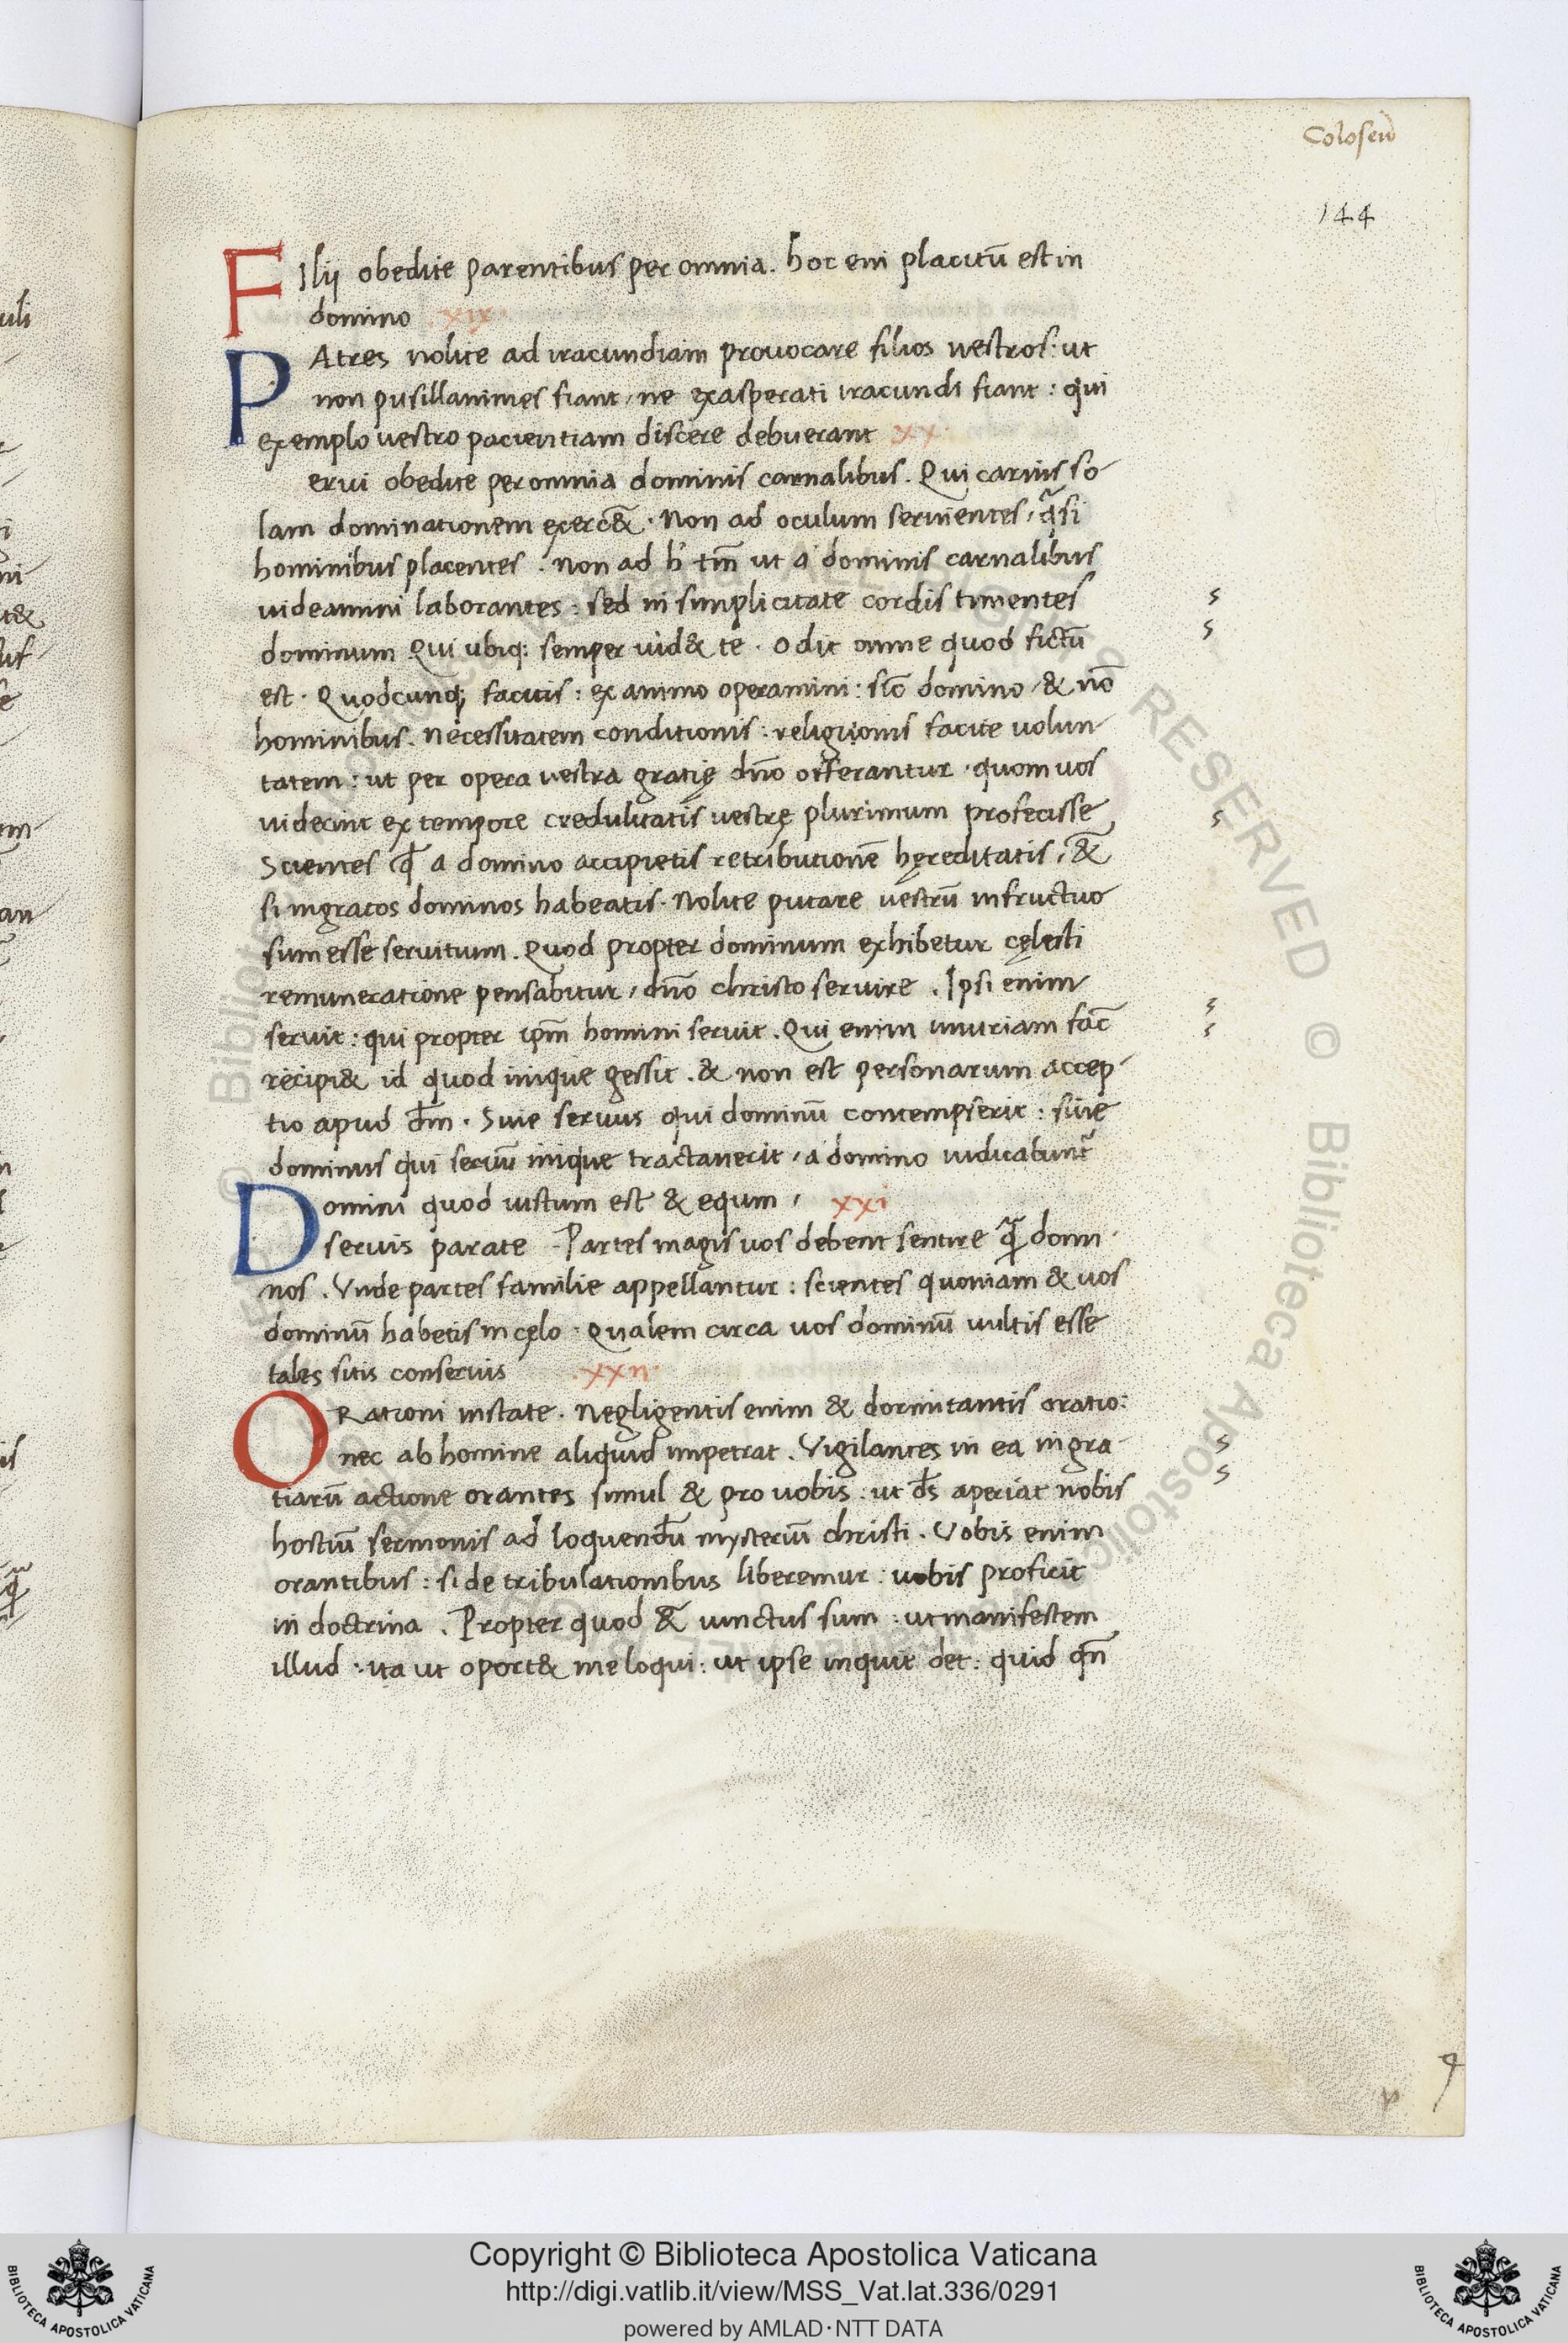 Colosen̄
144
FIlij obedite parentibus per omnia. hoc eni placitū est in
domino .xix.
PAtres nolite ad iracundiam provocare filios vestros: ut
non pusillanimes fiant, ne exasperati iracundi fiant: qui
exemplo vestro pacientiam discere debuerant xx.
ervi obedite per omnia dominis carnalibus. Qui carnis so-
lam dominationem exerc&. Non ad oculum servientes, q̄si
hominibus placentes. Non ad h̄ tm̄ ut a dominis carnalibus
videamini laborantes: sed in simplicitate cordis timentes
dominum Qui ubiq; semper vid& te. Odit omne quod fictū
est. Quodcunq; facitis: ex animo operamini: sic̄ domino, & nō
hominibus. Necessitatem conditionis: religionis facite volun-
tatem: ut per opera vestra gratię dn̄o offerantur. quom vos
viderint ex tempore credulitatis vestrę plurimum profecisse,
Scientes qđ a domino accipietis retributionē hęreditatis, &
si ingratos dominos habeatis. Nolite putare vestrū infructuo
sum esse servitium. Quod propter dominum exhibetur cęlesti
remuneratione pensabitur, dn̄o christo servire. Ipsi enim
servit: qui propter ipm̄ homini servit. Qui enim iniuriam fac̄
recipi& id quod inique gessit. & non est personarum accep-
tio apud dm̄. Sive servus qui dominū contempserit: sive
dominus qui servū inique tractaverit, a domino iudicabunt᷑
Domini quod iustum est & equm, xxi
servis parate. Partes magis vos debent sentire q̄ domi-
nos. Vnde partes familie appellantur: scientes quoniam & vos
dominū habetis in cęlo. Qualem circa vos dominū vultis esse
tales sitis conservis .xxii.
ORationi instate. Negligentis enim & dormitantis oratio:
nec ab homine aliquid impetrat. Vigilantes in ea in gra-
tiarū actione orantes simul & pro vobis: ut ds̄ aperiat nobis
hostiū sermonis ad loquendū mysteriū christi. Vobis enim
orantibus: si de tribulationibus liberemur: vobis proficit
in doctrina. Propter quod & vinctus sum: ut manifestem
illud: ita ut oport& me loqui: ut ipse inquit det: quid qn̄
p
RESERVED © Biblioteca Apostolic
© Biblioteca
Copyright © Biblioteca Apostolica Vaticana
http://digi.vatlib.it/view/MSS_Vat.lat.336/0291
powered by AMLAD·NTT DATA
BIBLIOTECA APOSTOLICA VATICANA
BIBLIOTECA APOSTOLICA VATICANA